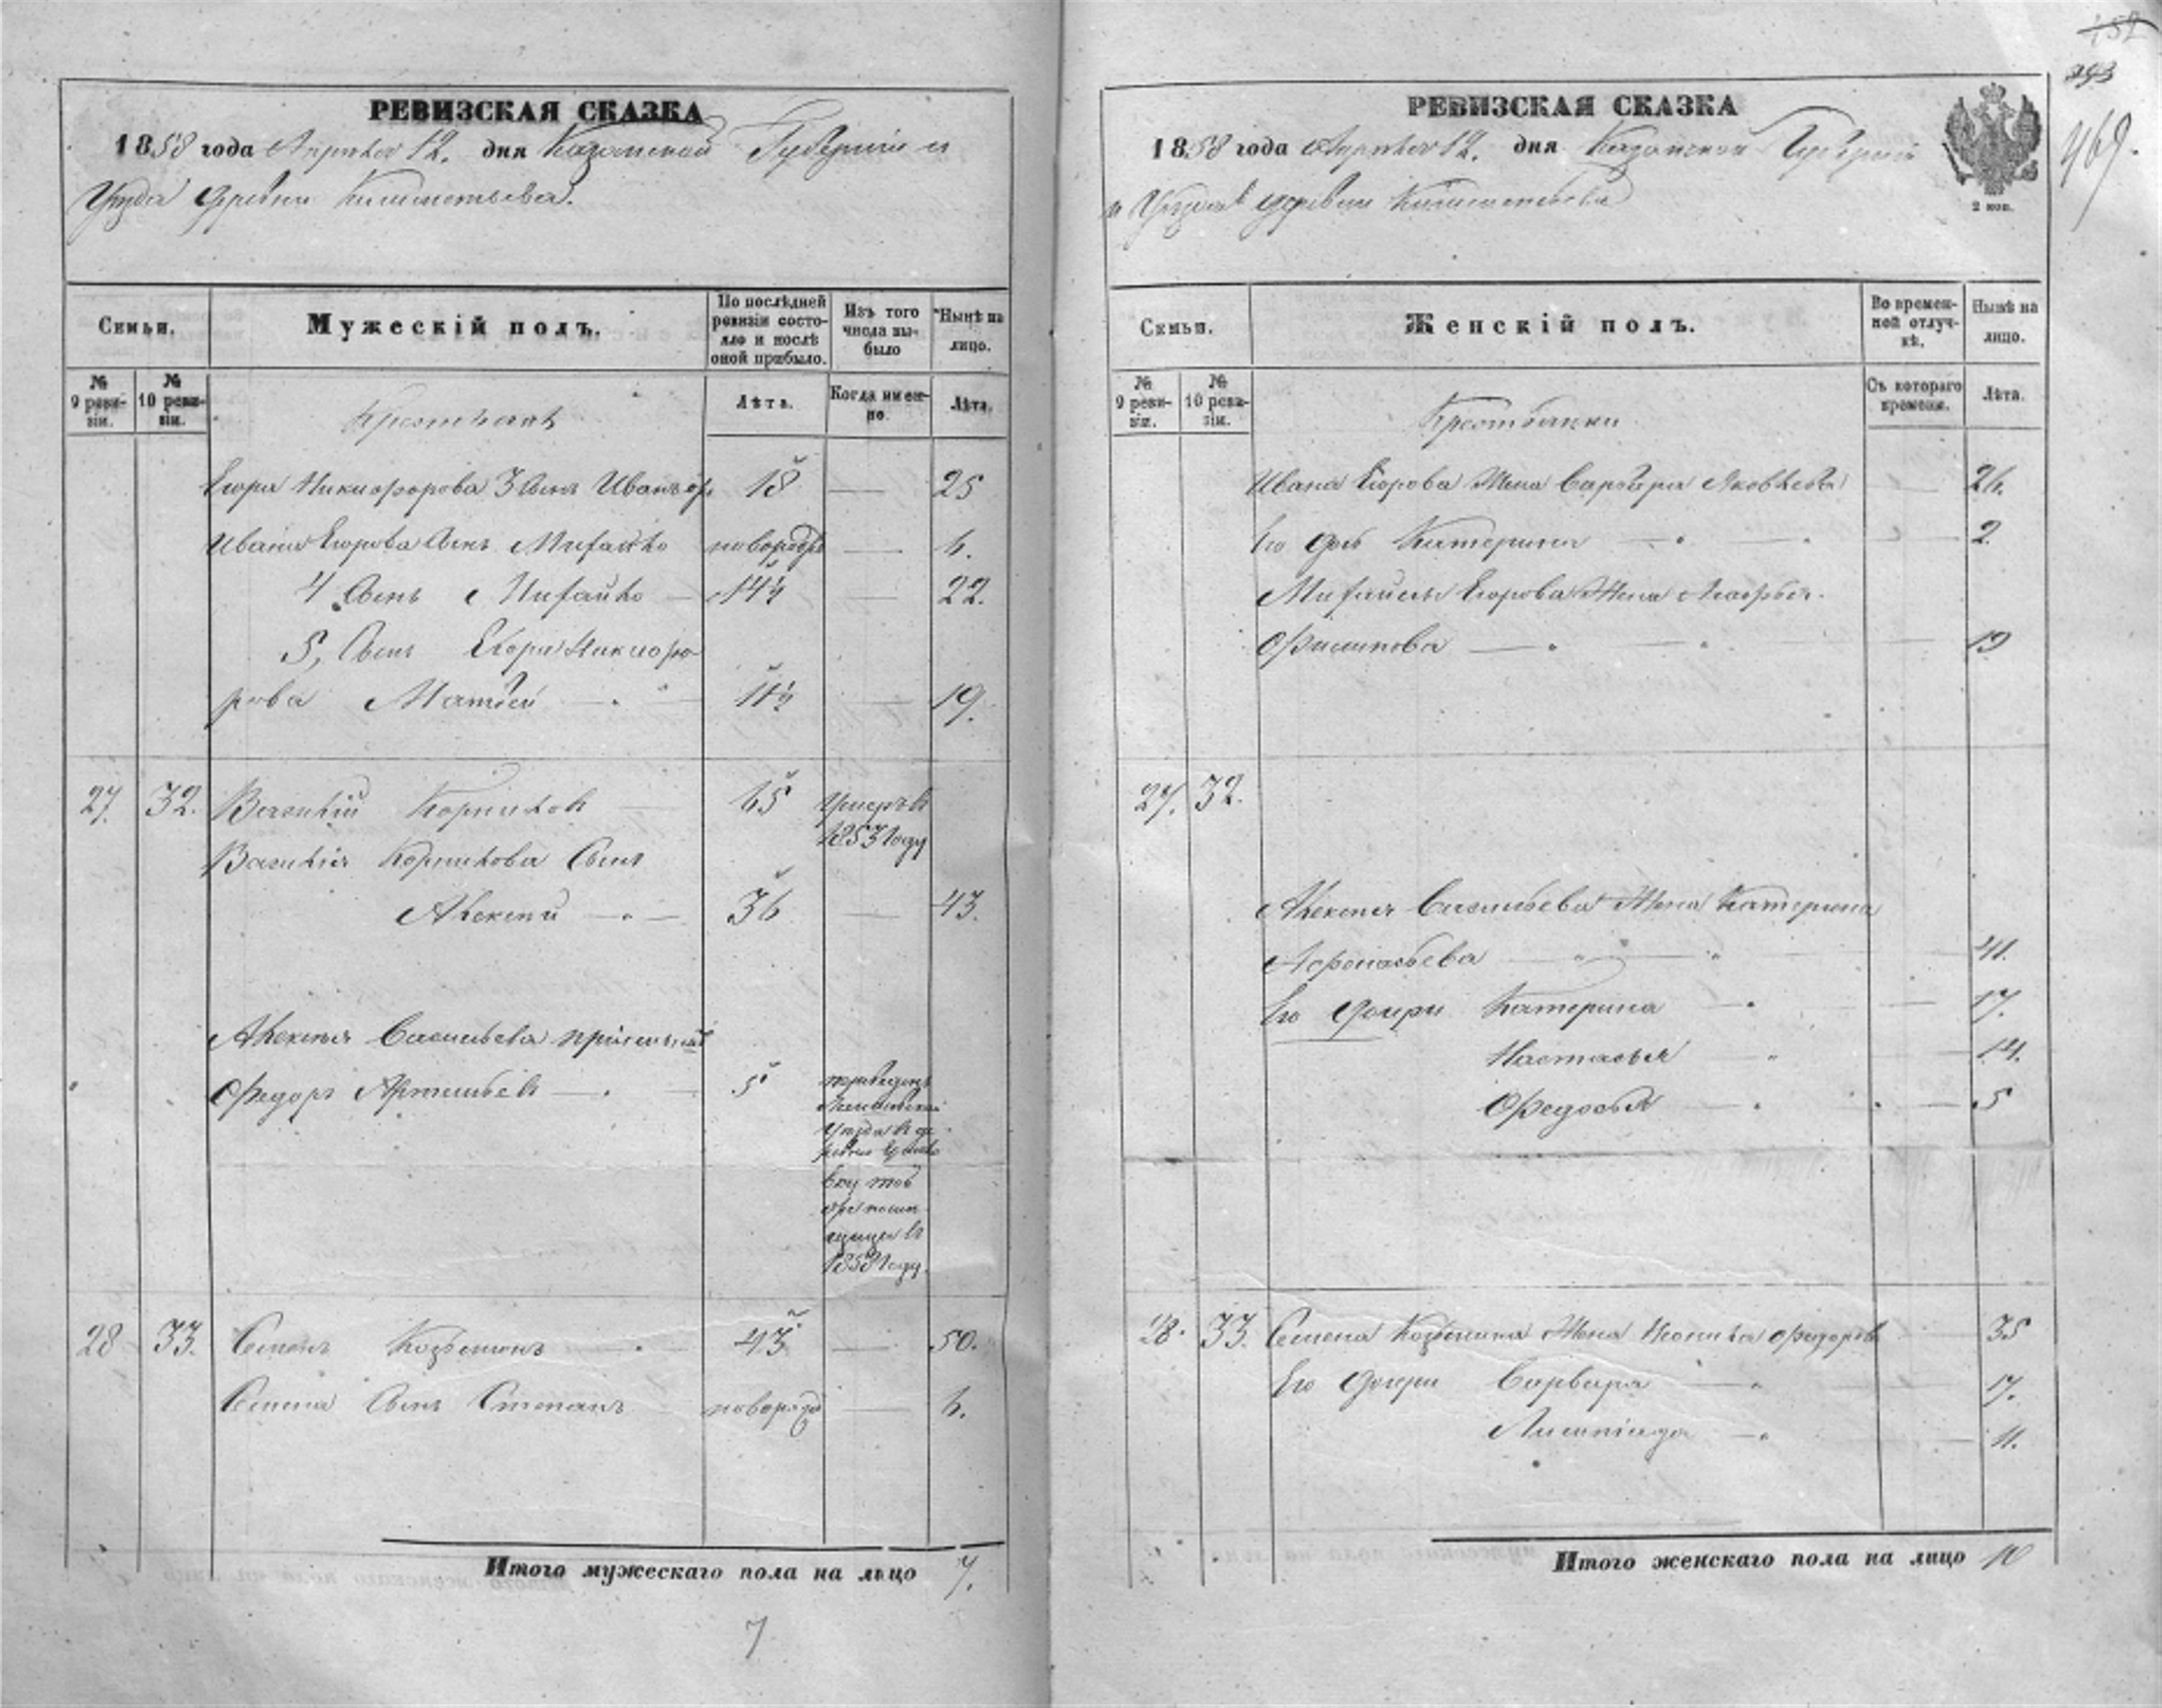 РЕВИЗСКАЯ СКАЗКА
1858 года Апреля 12. дня Казанской Губернии и
Уезда деревни
Семьи.
Мужескій полъ.
По послѣдней ревизіи состояло и послѣ оной прибыло.
Изъ того числа выбыло
Нынѣ на лицо.
№ 9 ревизіи.
№ 10 ревизіи.
Лѣта.
Когда именно.
Лѣта.
Крестьяне
Егора Никифорова 3 сынъ Иванъ 18 — 25
Ивана Егорова сынъ Михайло новорожд — 6.
4 сынъ Михайло — 14½ — 22.
5, сынъ Егора Никифо-
рова Матвей 11½ — 19.
27. 32. Василий Корнилов 65 Умеръ в
1853 году
Василия Корнилова сынъ
Алексей 36 — 43.
Алексея Васильева приемышъ
Федоръ Артемьев 5
переведенъ
уезда в де-
ревню
в
году.
28 33. Семенъ Козьминъ 43 — 50.
Семена сынъ Степанъ новорожд — 6.
Итого мужескаго пола на лицо 7.
7
152
293
469.
РЕВИЗСКАЯ СКАЗКА
1858 года Апреля 12. дня Казанской Губернии
и Уезда деревни
2 коп.
Семьи.
Женскій полъ.
Во временной отлучкѣ.
Нынѣ на лицо.
№ 9 ревизіи.
№ 10 ревизіи.
Съ котораго времени.
Лѣта.
Крестьянки
Ивана Егорова жена Варвара Яковлева
Его дочь Катерина 2
Михайлы Егорова жена Марья
Филипова 19
27. 32.
Алексея Васильева жена Катерина
Афонасьева 41.
Его дочери Катерина 17.
Настасья 14.
Федосья 5
28. 33. Семена Козьмина жена Федоров 35
Его дочери Варвара 17.
11.
Итого женскаго пола на лицо 10